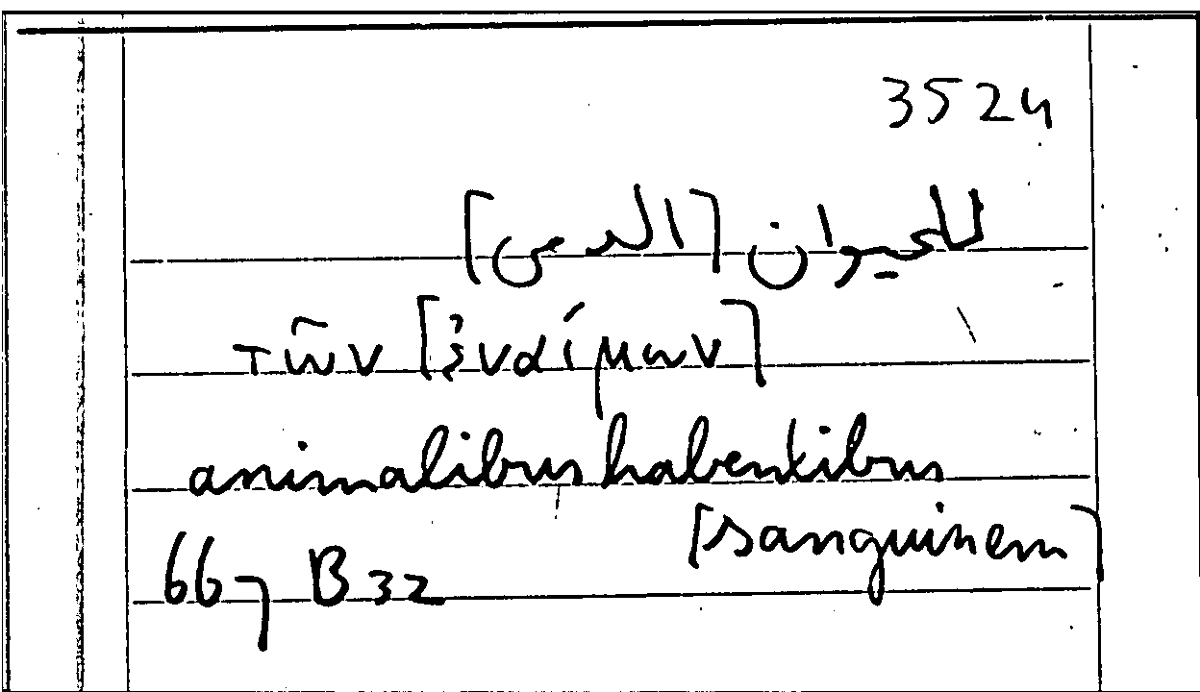 3524
للحيوان [الدمى]
τῶν [ἐναίμων]
animalibus habentibus
[sanguinem]
667 B 32